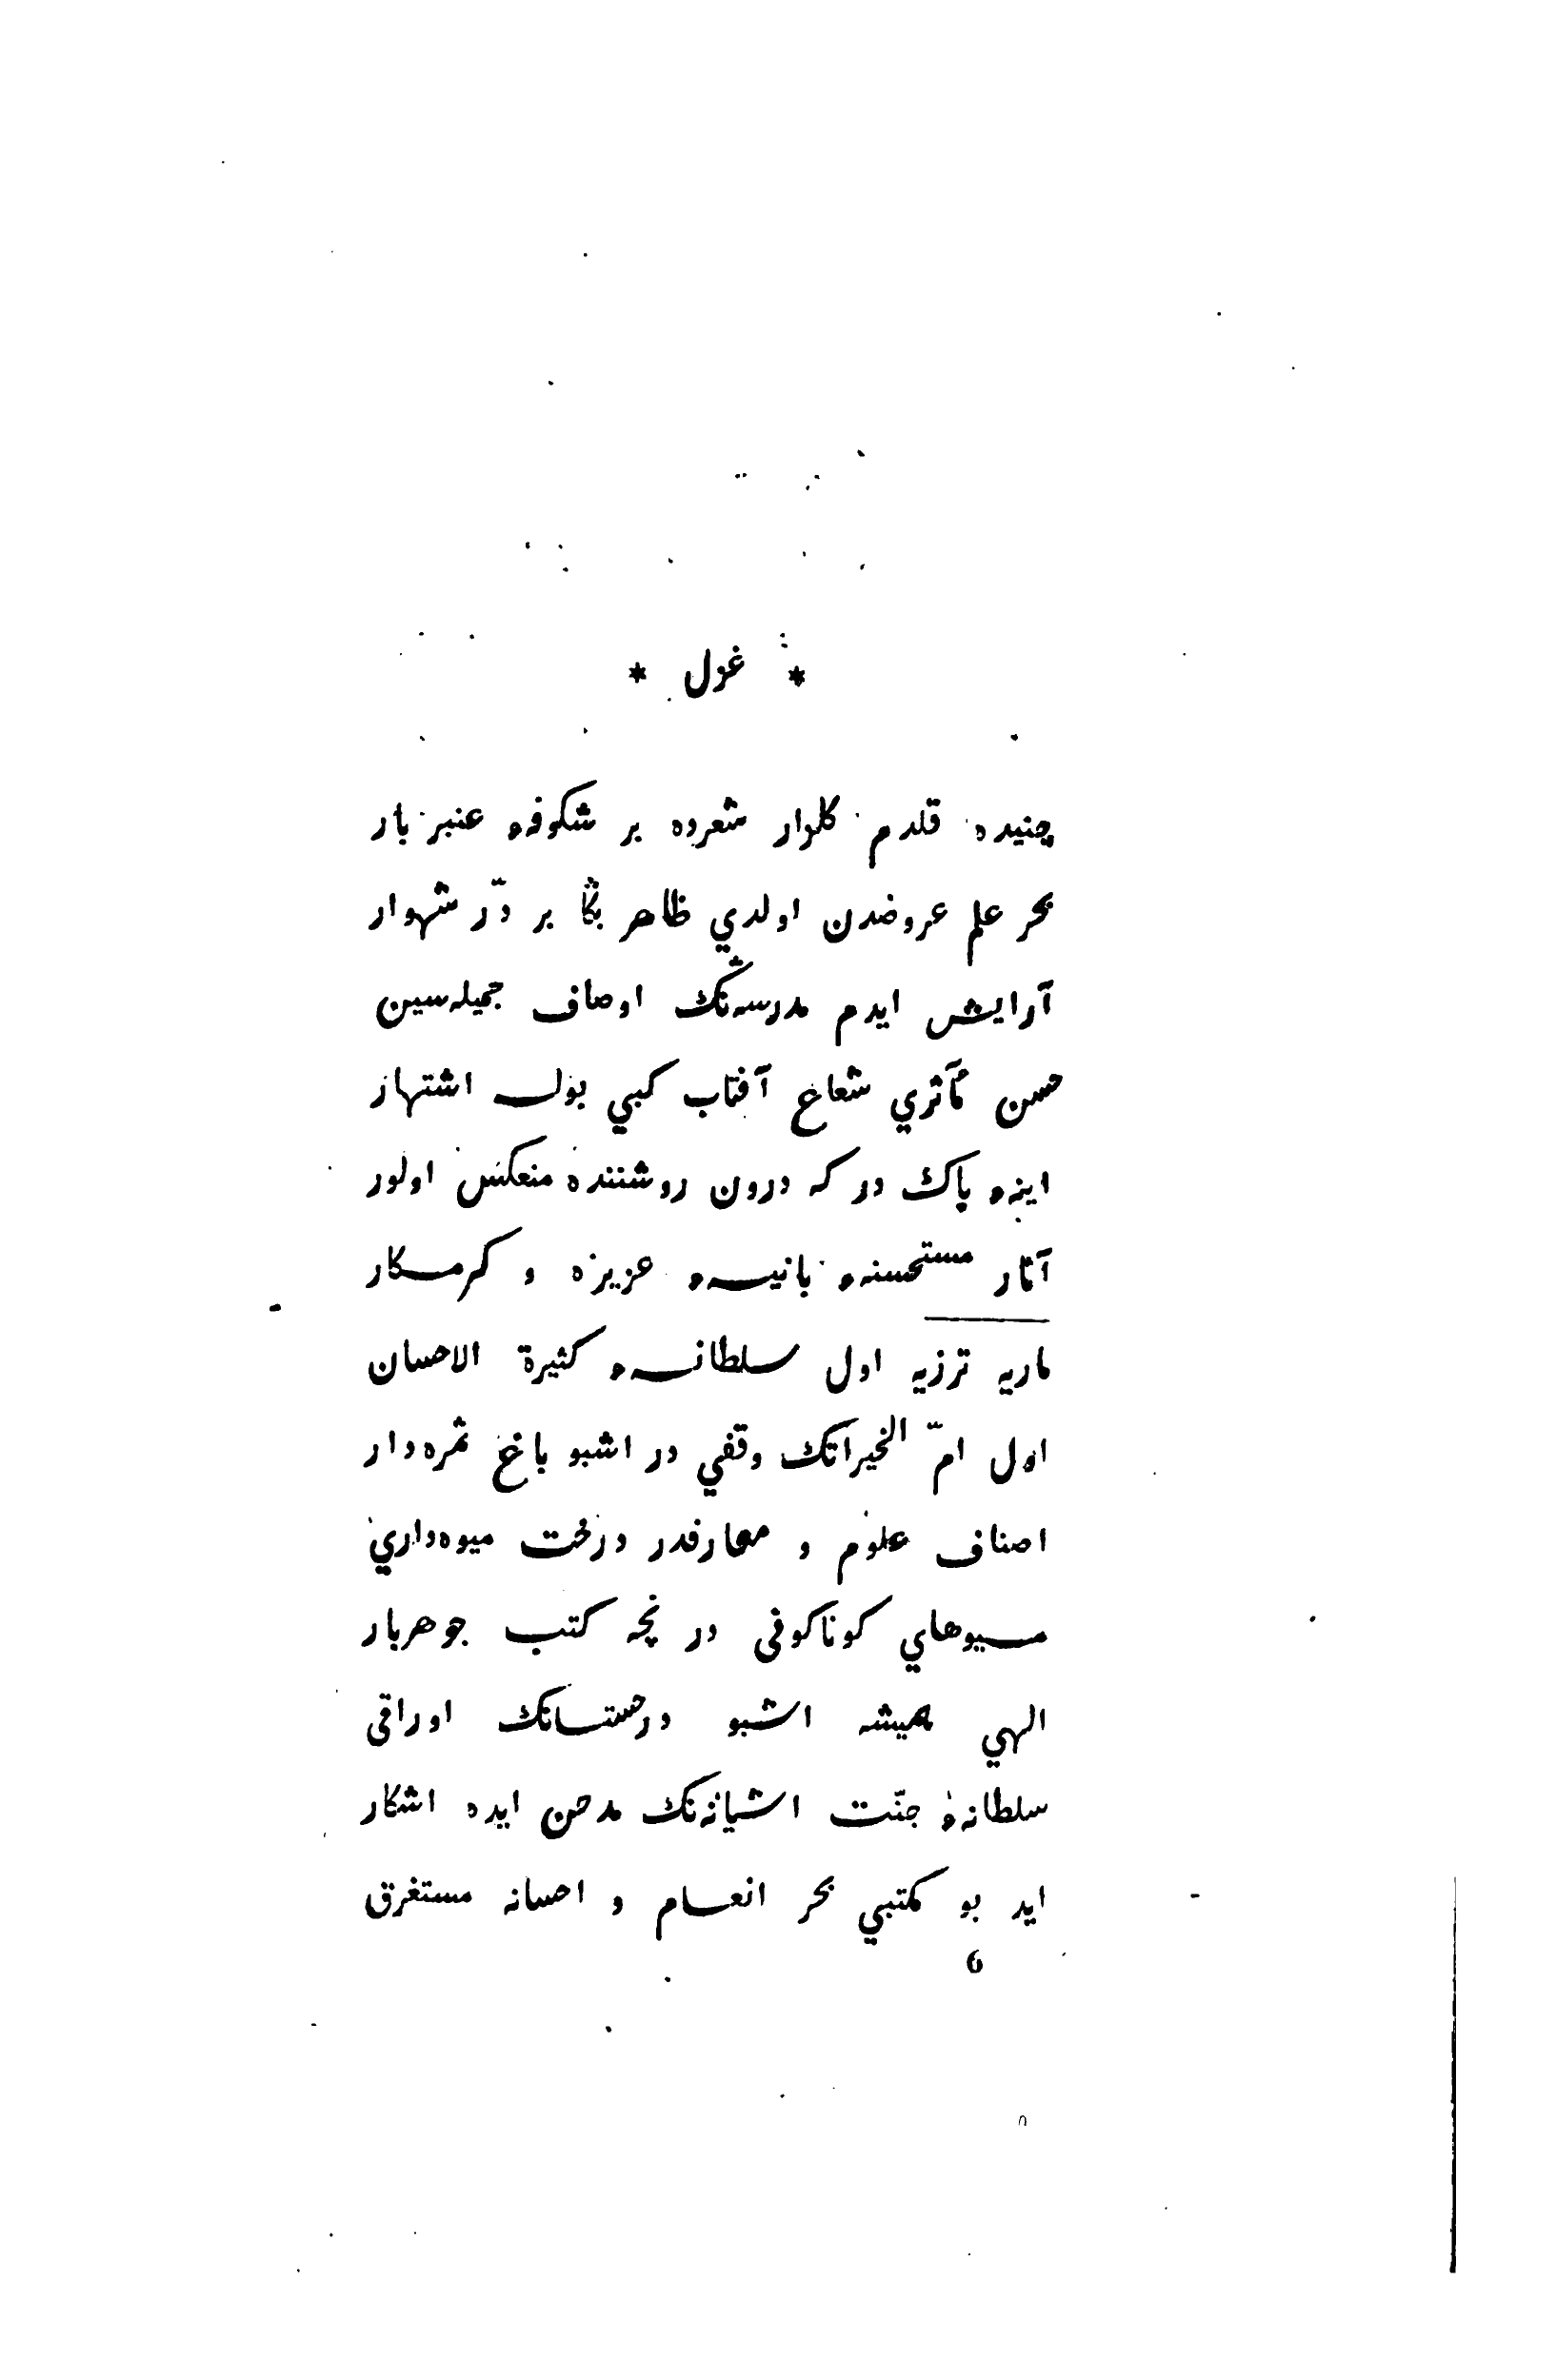 * غزل *
چنيده قلدم كلزار شعرده بر شكوفهء عنبر بار
بحر علم عروضدن اولدي ظاهر بڭا بر درّ شهوار
آرايش ايدم مدرسه‌نڭ اوصاف جميله‌سين
حسن مآثري شعاع آفتاب كبي بولـه اشتهار
اينهء پاك در كه درون روشننده منعكس اولور
آثار مستحسنهء بانيـهء عزيزه و كرمـكار
ماريه ترزيه اول سلطانـهء كثيرة الاحسان
اول امّ الخيراتك وقفي در اشبو باغ ثمره‌دار
اصناف علوم و معارفدر درخت ميوه‌داري
ميوهاي كوناكونى در نچه كتب جوهربار
الهي هميشه اشبو درختسانك اوراقى
سلطانهٔ جنّت اشيانه‌نك مدحن ايده اشكار
ايد بو مكتبي بحر انعـام و احسانه مستغرق
6